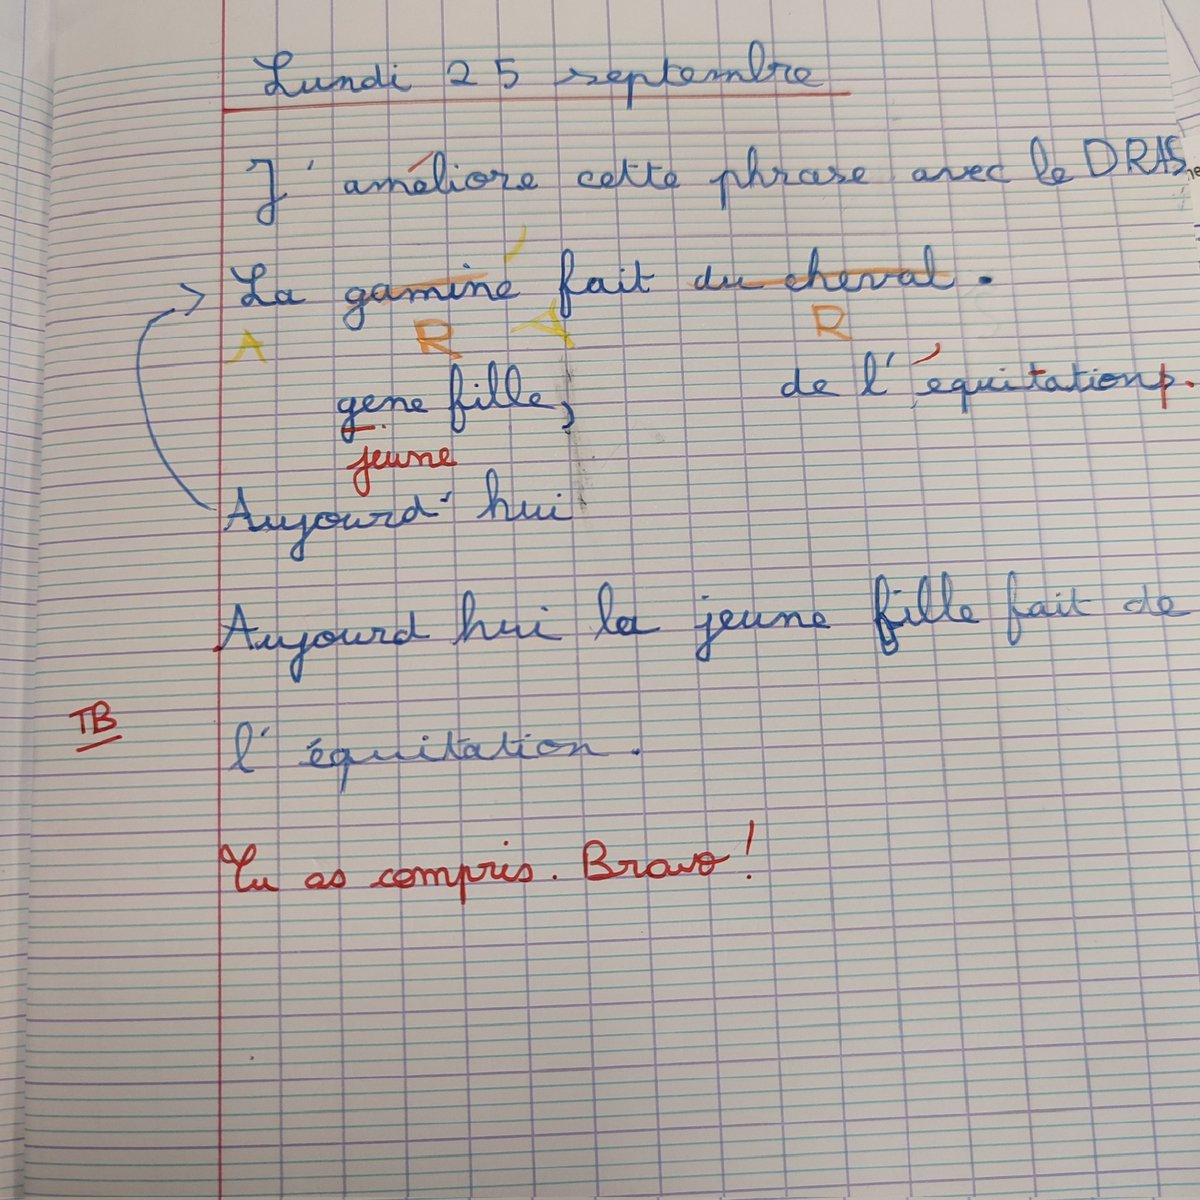 Lundi 25 septembre
J'améliore cette phrase avec le DRAS
La gamine fait du cheval.
A R A R
gene fille, de l'équitation.
jeune
Aujourd'hui
Aujourd hui la jeune fille fait de
TB
l'équitation.
Tu as compris. Bravo!